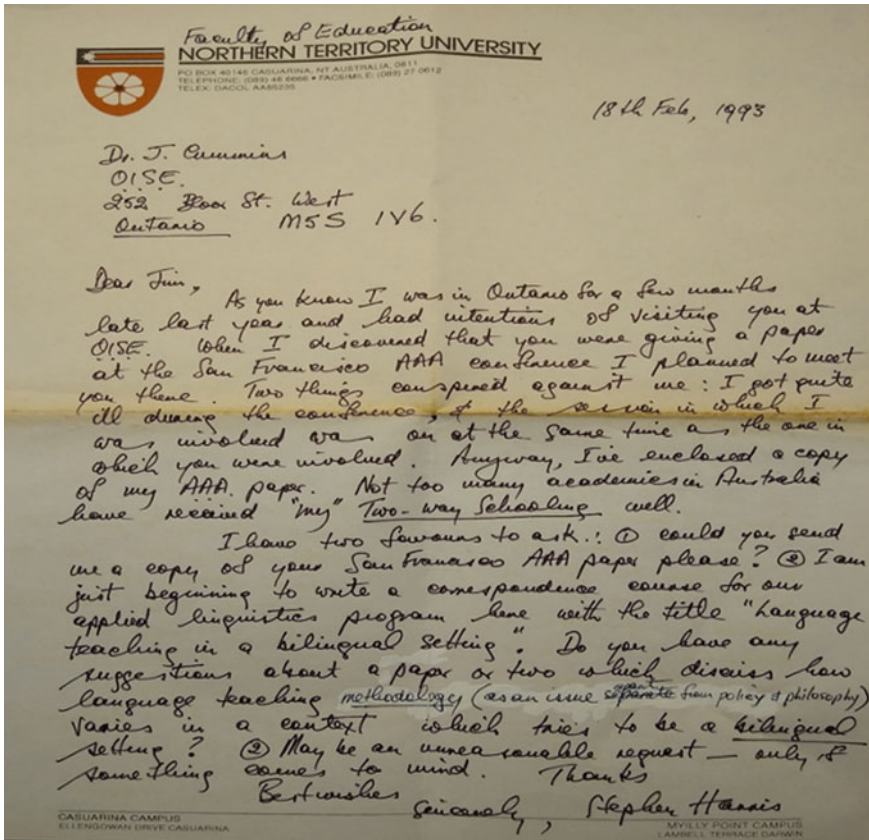 Faculty of Education
NORTHERN TERRITORY UNIVERSITY
PO BOX 40146 CASUARINA, NT AUSTRALIA, 0811
TELEPHONE: (089) 46 6666 • FACSIMILE: (089) 27 0612
TELEX: DACOL AA85235
18th Feb, 1993
Dr. J. Cummins
OISE.
252 Bloor St. West
Ontario M5S 1V6.
Dear Jim,
As you know I was in Ontario for a few months
late last year and had intentions of visiting you at
OISE. When I discovered that you were giving a paper
at the San Francisco AAA conference I planned to meet
you there. Two things conspired against me: I got quite
ill during the conference, & the session in which I
was involved was on at the same time as the one in
which you were involved. Anyway, I've enclosed a copy
of my AAA. paper. Not too many academics in Australia
have received "my" Two-way Schooling well.
I have two favours to ask.: ① could you send
me a copy of your San Francisco AAA paper please? ② I am
just beginning to write a correspondence course for our
applied linguistics program here with the title "Language
teaching in a bilingual setting". Do you have any
suggestions about a paper or two which discuss how
language teaching methodology (as an issue separate from policy & philosophy)
varies in a context which tries to be a bilingual
setting? ② May be an unreasonable request — only if
something comes to mind. Thanks
Best wishes
Sincerely, Stephen Harris
CASUARINA CAMPUS
ELLENGOWAN DRIVE CASUARINA
MYILLY POINT CAMPUS
LAMBELL TERRACE DARWIN